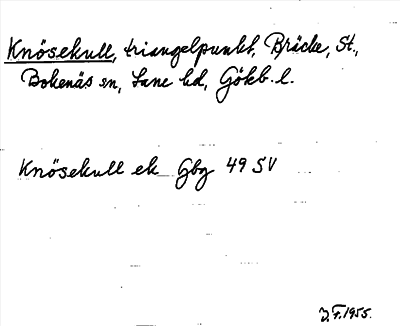 Knösekull, triangelpunkt, Bräcke, St.,
Bokenäs sn, Lane hd, Gökb. l.
Knösekull ek Gbg 49 SV
J.F. 1955.